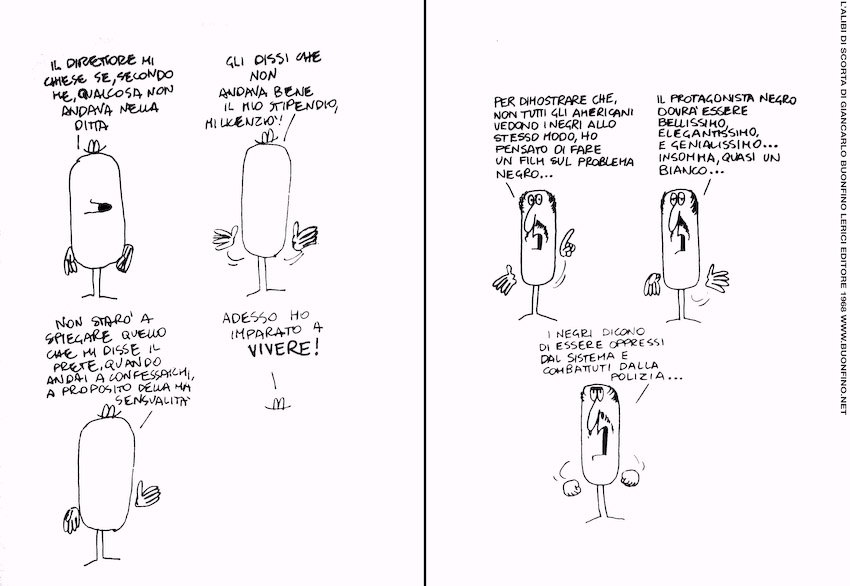 IL DIRETTORE MI
CHIESE SE, SECONDO
ME, QUALCOSA NON
ANDAVA NELLA
DITTA
GLI DISSI CHE
NON
ANDAVA BENE
IL MIO STIPENDIO,
MI LICENZIO'!
NON STARO' A
SPIEGARE QUELLO
CHE MI DISSE IL
PRETE, QUANDO
ANDAI A CONFESSARMI,
A PROPOSITO DELLA MIA
SENSUALITA'
ADESSO HO
IMPARATO A
VIVERE!
PER DIMOSTRARE CHE,
NON TUTTI GLI AMERICANI
VEDONO I NEGRI ALLO
STESSO MODO, HO
PENSATO DI FARE
UN FILM SUL PROBLEMA
NEGRO...
IL PROTAGONISTA NEGRO
DOVRA' ESSERE
BELLISSIMO,
ELEGANTISSIMO,
E GENIALISSIMO...
INSOMMA, QUASI UN
BIANCO...
I NEGRI DICONO
DI ESSERE OPPRESSI
DAL SISTEMA E
COMBATTUTI DALLA
POLIZIA...
L'ALIBI DI SCORTA DI GIANCARLO BUONFINO LERICI EDITORE 1968 WWW.BUONFINO.NET